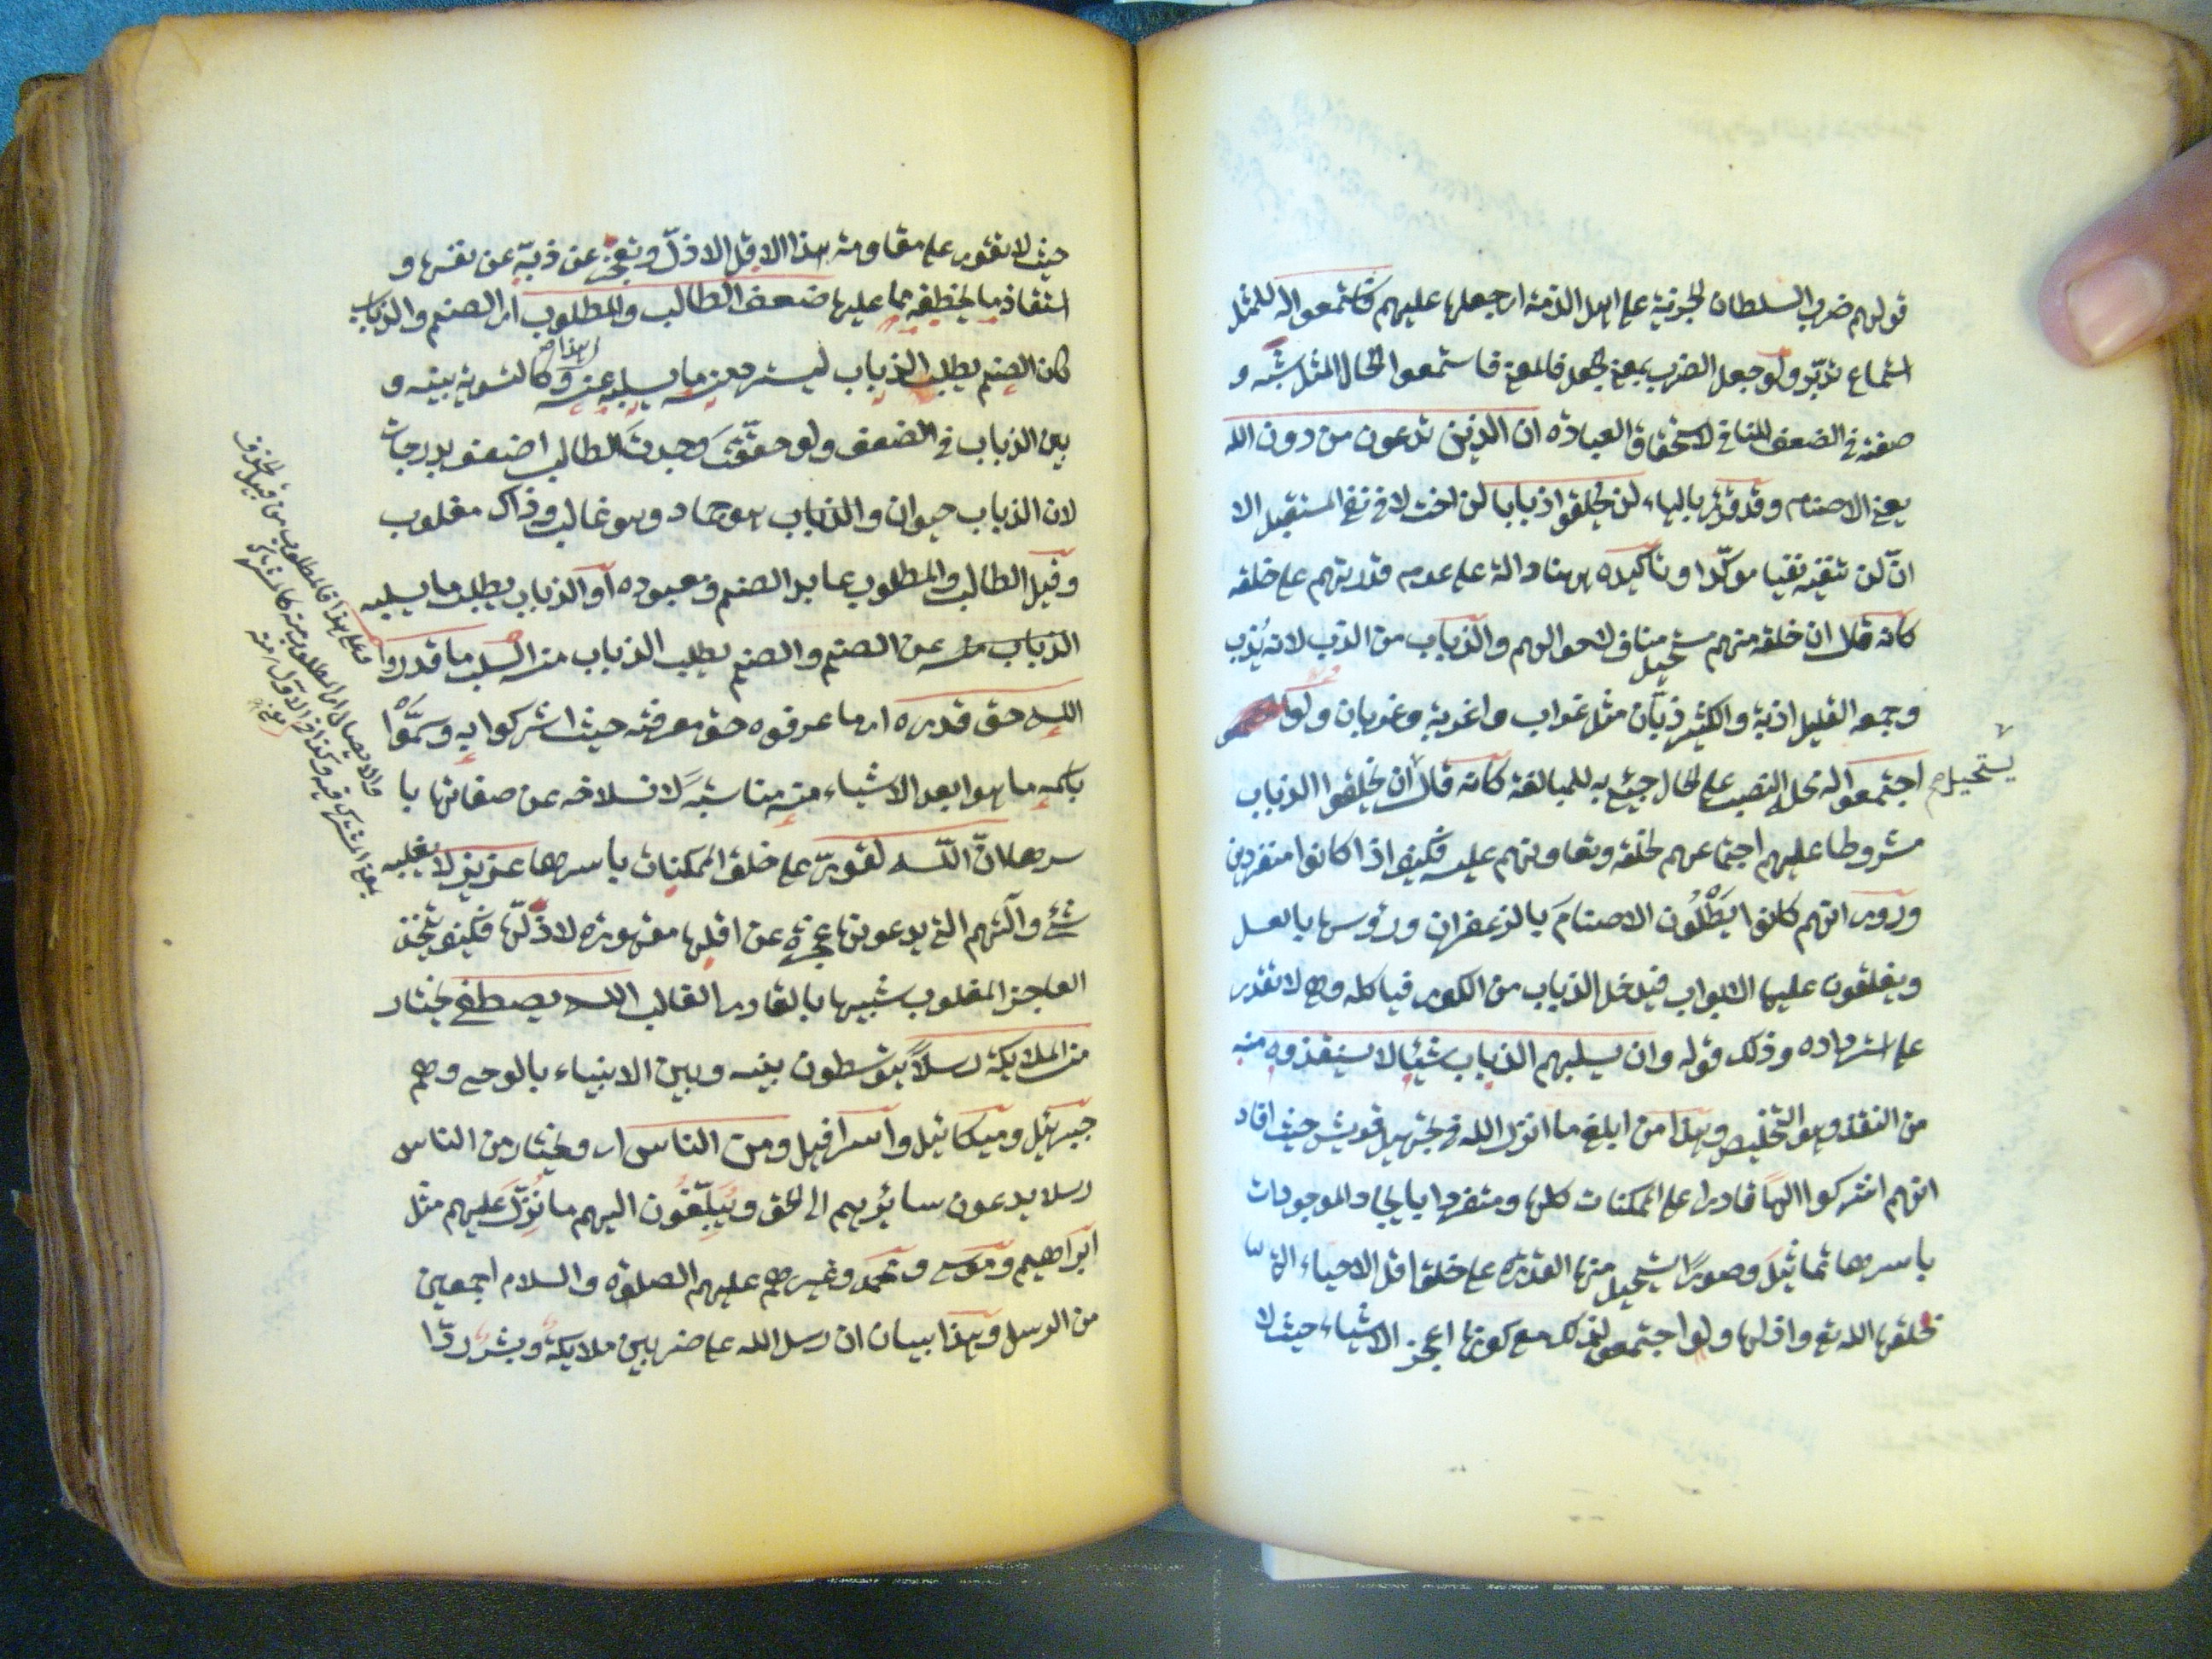 قولهم ضرب السلطان الجزية على اهل الذمة اى جعلها عليهم فاستمعوا له للمثل
استماع تدبّر ولو جعل الضرب بمعنى الجعل فالمعنى فاستمعوا لحال المثل شبّه و
صفته فى الضعف المنافى لاستحقاق العبادة ان الذين تدعون من دون الله
يعنى الاصنام وقد قرئ بالياء لن يخلقوا ذبابا لن اخت لا فى نفى المستقبل الا
انّ لن تنفيه نفيا موكّدا وتاكيده ههنا دالة على عدم قدرتهم على خلقه
كانه قال ان خلقه منهم مستحيل مناف لاحوالهم والذباب من الذب لانه يُذب
وجمعه القليل اذبة والكثير ذبّان مثل غراب واغربة وغربان ولو
اجتمعوا له محله النصب على الحال جيئ به للمبالغة كانه قال ان يخلقوا الذباب
يستحيل صح
مشروطا عليهم اجتماعهم لخلقه وتعاونهم عليه فكيف اذا كانوا منفردين
وروى انهم كانوا يَطْلُون الاصنامَ بالزعفران ورؤسها بالعسل
ويغلقون عليها الابواب فيدخل الذباب من الكوى فياكله وهى لا تقدر
على استرداده وذلك قوله وان يسلبهم الذباب شيئا لا يستنقذوه منه
من النقذ وهو التخليص وهذا من ابلغ ما انزل الله فى تجهيل قريش حيث افاد
انهم اشركوا الها قادرا على الممكنات كلها ومتفردا بايجاد الموجودات
باسرها تماثيلَ وصورًا يستحيل منها القدرة على خلق اقل الاحياء التى
خلقها الله تع واذلها ولو اجتمعوا لذلك مع كونها اعجز الاشياء حيث لا
حيث لا تقوى على مقاومة هذا الاقل الاذلّ وتعجز عن ذبّه عن نفسها و
استنقاذ ما يخطفه مما عليها ضعف الطالب والمطلوب اى الصنم والذباب
كان الصنم يطلب الذباب ليسترد منه ما يسلبه عنه وهذا كالتسوية بينه و
بين الذباب فى الضعف ولو حقّقتَ وجدتَ الطالب اضعف بدرجات
لان الذباب حيوان والذباب هو جماد وهو غالب وذاك مغلوب
وقيل الطالب والمطلوب عابد الصنم ومعبوده او الذباب يطلب ما يسلبه
الذباب منه عن الصنم والصنم يطلب الذباب منه السلب ما قدروا
الله حق قدره اى ما عرفوه حق معرفته حيث اشركوا به وسمَّوْا
باسمه ما هو ابعد الاشياء منه مناسبةً لانسلاخه عن صفاتها با
سرها ان الله لقوىّ على خلق الممكنات باسرها عزيز لا يغلبه
شئ والهتهم التى يدعونها عجزة عن اقلها مقهورة لاذلّها فكيف يتخذ
العاجز المغلوب شبيها بالقادر الغالب الله يصطفى يختار
من الملايكة رسلاً يتوسطون بينه وبين الانبياء بالوحى وهم
جبرئيل وميكائيل واسرافيل ومن الناس اى ويختار من الناس
رسلا يدعون سائرهم الى الحق ويُبلّغُون اليهم ما نُزّل عليهم مثل
ابراهيم وموسى ومحمد وغيرهم عليهم الصلوة والسلام اجمعين
من الرسل وهذا بيان ان رسل الله على ضربين ملايكة وبشر ردّا
وعلى هذا فالمطلوب من قبيل الحذف
والايصال اى المطلوب منه كالمشترك
يعنى المشترك فيه وكذا فى الاول منه